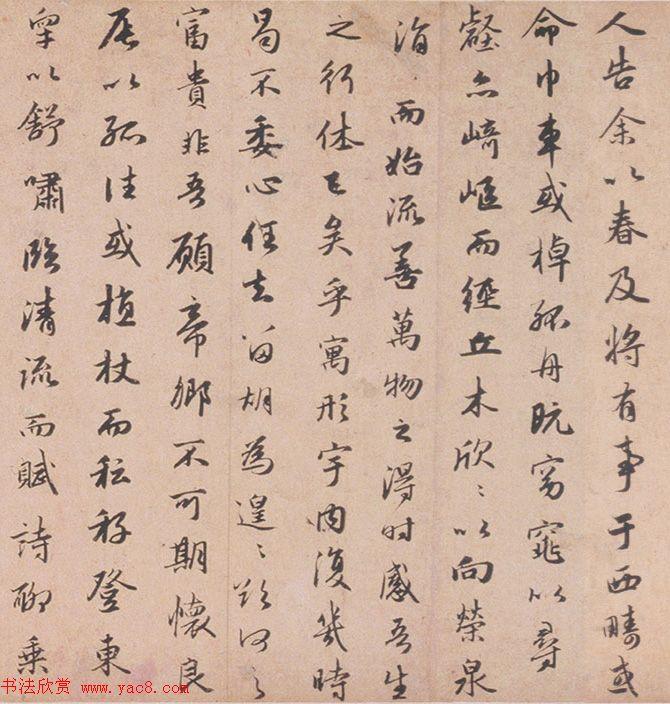 人告余以春及將有事于西疇或
命巾車或棹孤舟既窈窕以尋
壑亦崎嶇而經丘木欣〻以向榮泉
涓而始流善萬物之得时感吾生
之行休已矣乎寓形宇內復幾時
曷不委心任去留胡為遑〻欲何之
富貴非吾願帝鄉不可期懷良
辰以孤往或植杖而耘耔登東
皋以舒嘯臨清流而賦詩聊乘
书法欣赏 www.yac8.com